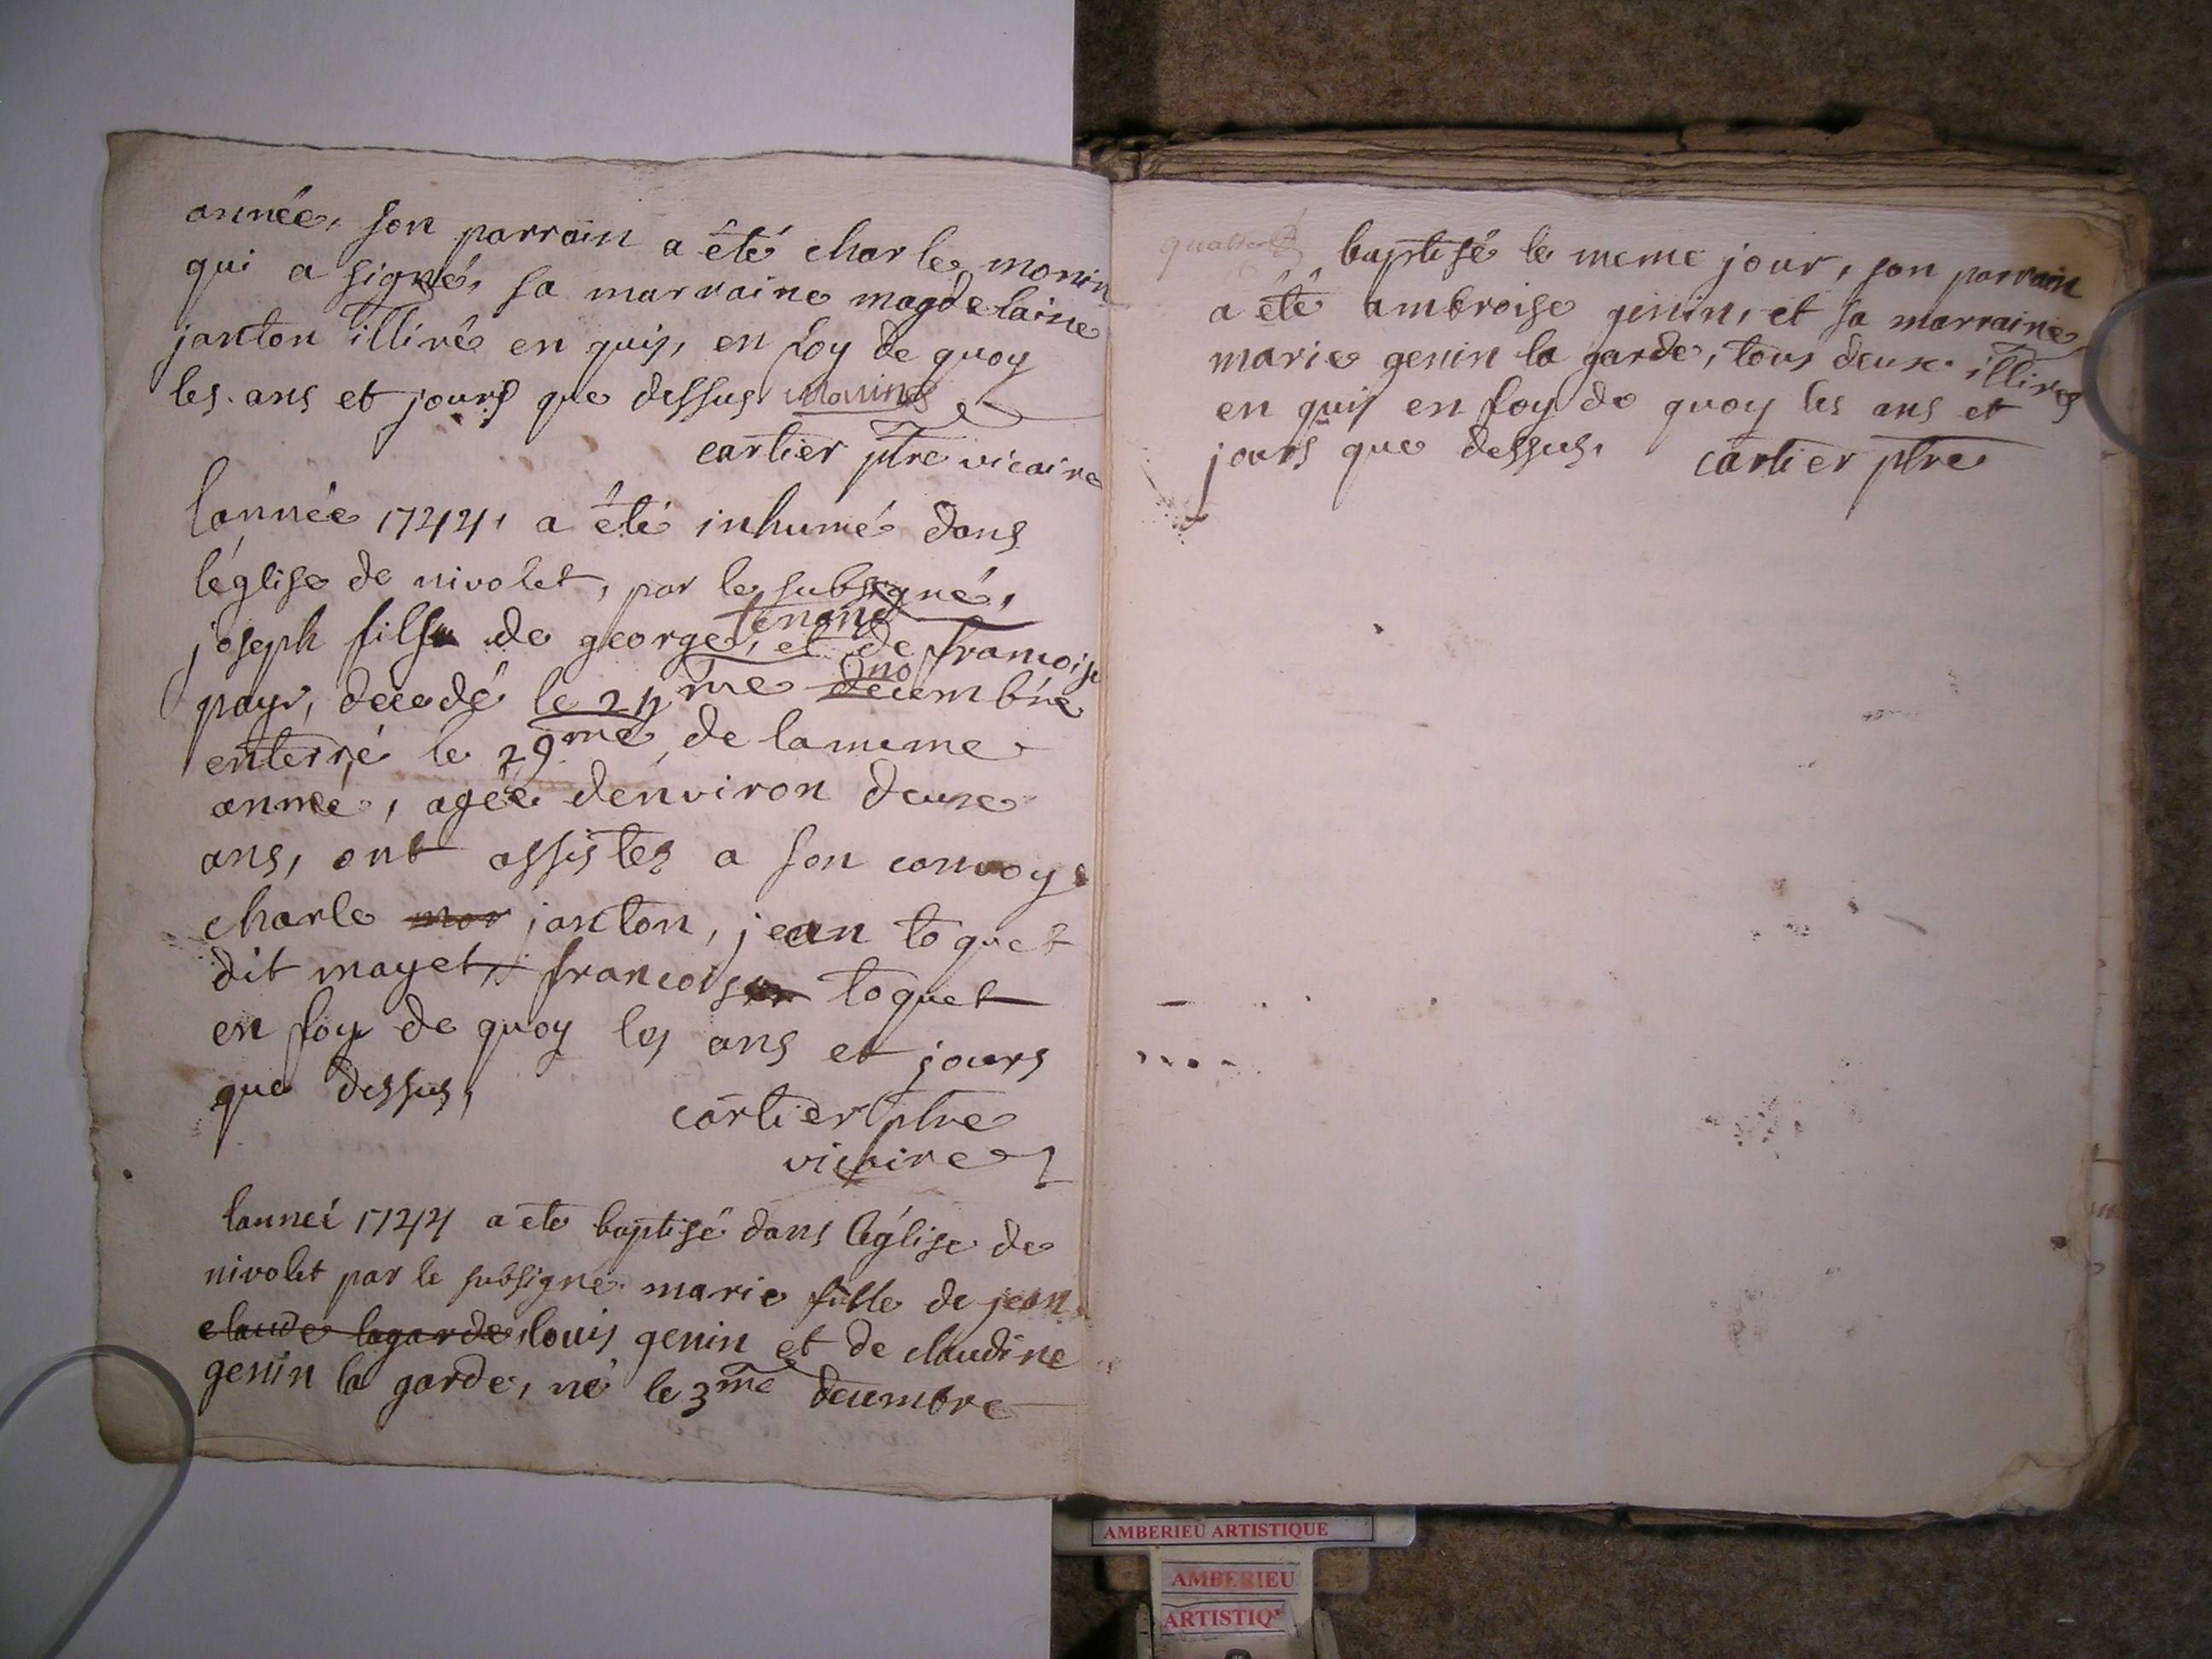 année, son parrain a été charle monin
qui a signé, sa marraine magdelaine
janton illiré en quis, en foy de quoy
les ans et jours que dessus monin
cartier ptre vicaire
lannée 1744, a été inhumé dans
léglise de nivolet, par le subsigné,
tenand
joseph fils de george, et de francoise
no
payr, décédé le 24me decembre
enterré le 29me de lameme
année, agée denviron deux
ans, ont assistez a son convoy
charle mor janton, jean toquet
dit mayet, francois toquet
en foy de quoy les ans et jours
que dessus,
cartier ptre
vicaire
lanneé 1744 a ete baptisé dans léglise de
nivolet par le subsigné marie fille de jean
claude lagarde louis genin et de claudine
genin la garde, né le 3me decembre
baptisé le meme jour, son parrain
a été ambroise genin, et sa marraine
marie genin la garde, tous deux illires
en quis en foy de quoy les ans et
jours que dessus, cartier ptre
AMBERIEU ARTISTIQUE
AMBERIEU
ARTISTIQ